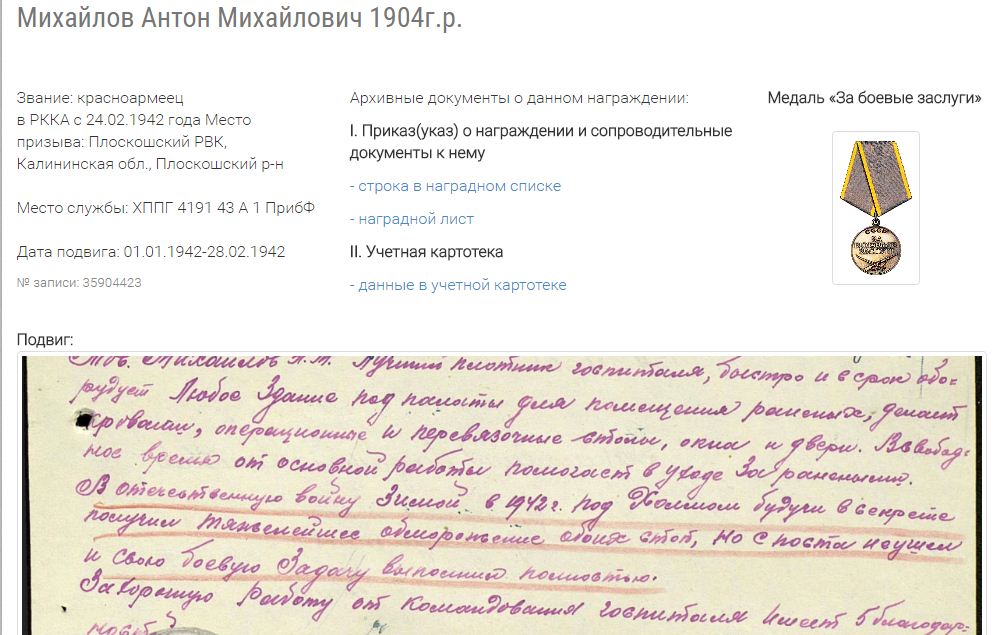 Михайлов Антон Михайлович 1904г.р.
Звание: красноармеец
в РККА с 24.02.1942 года Место
призыва: Плоскошский РВК,
Калининская обл., Плоскошский р-н
Место службы: ХППГ 4191 43 А 1 ПрибФ
Дата подвига: 01.01.1942-28.02.1942
№ записи: 35904423
Архивные документы о данном награждении:
I. Приказ(указ) о награждении и сопроводительные
документы к нему
- строка в наградном списке
- наградной лист
II. Учетная картотека
- данные в учетной картотеке
Медаль «За боевые заслуги»
СССР
ЗА
БОЕВЫЕ
ЗАСЛУГИ
Подвиг:
Тов. Михайлов А.М. Лучший плотник госпиталя, быстро и в срок обо-
рудует Любое Здание под палаты для помещения раненых, делает
кровати, операционные и перевязочные столы, окна и двери. В свобод-
ное время от основной работы помогает в уходе За ранеными.
В отечественную войну Зимой в 1942г. под Холмом будучи в секрете
получил тяжелейшее обморожение обоих стоп, но с поста не ушел
и свою боевую Задачу выполнил полностью.
За хорошую работу от командования госпиталя имеет 5 благодар-